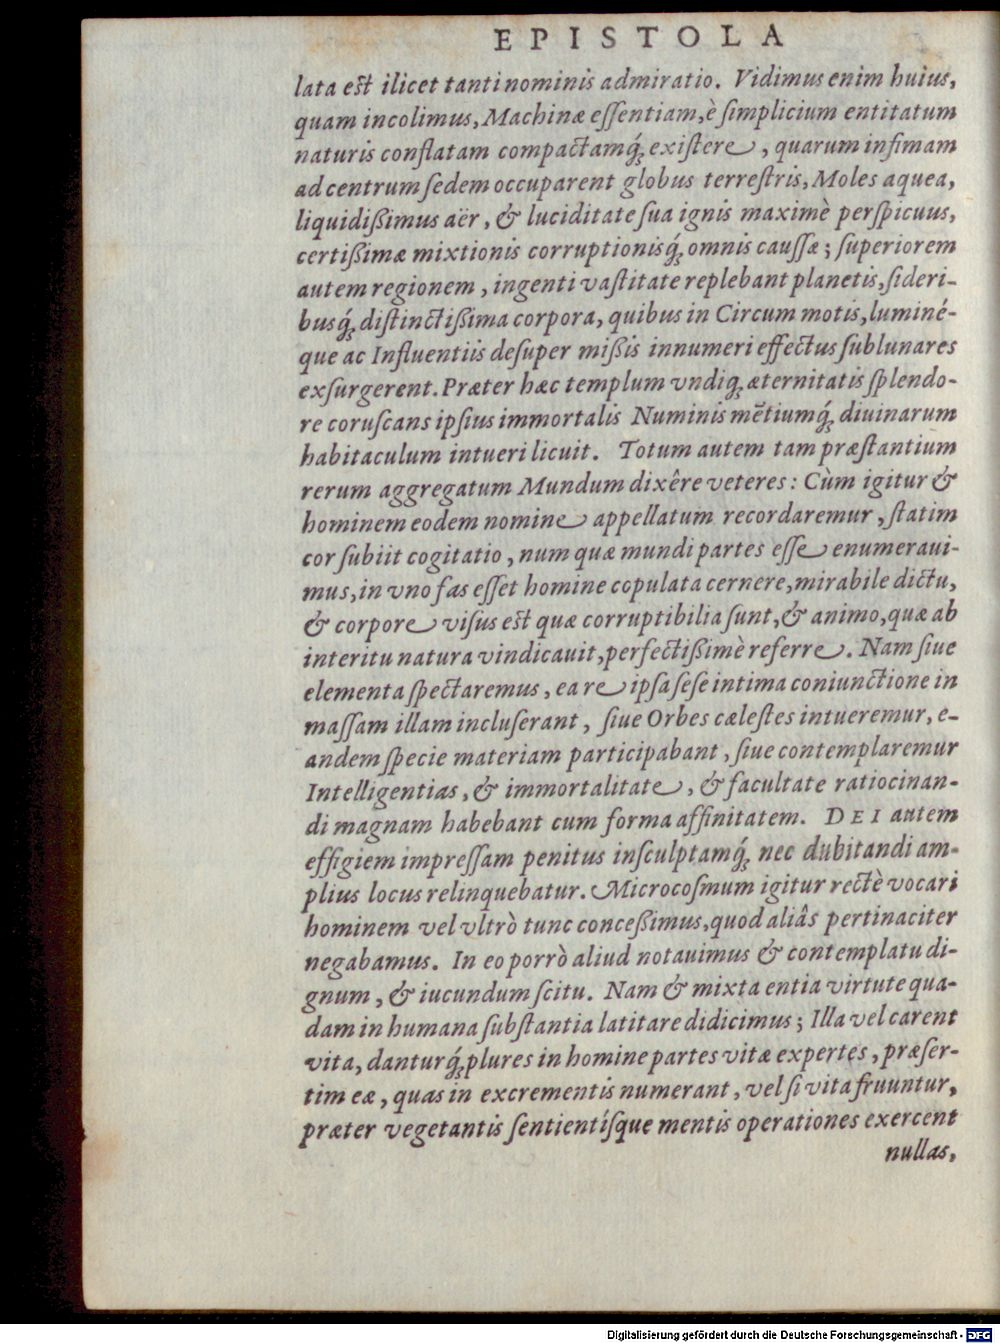 EPISTOLA
lata est ilicet tanti nominis admiratio. Vidimus enim huius,
quam incolimus, Machinæ eſſentiam, è ſimplicium entitatum
naturis conflatam compactamq́; exiſtere, quarum infimam
ad centrum ſedem occuparent globus terreſtris, Moles aquea,
liquidißimus aër, & luciditate ſua ignis maximè perſpicuus,
certißimæ mixtionis corruptionisq́; omnis cauſſæ; ſuperiorem
autem regionem, ingenti vaſtitate replebant planetis, ſideri-
busq́; diſtinctißima corpora, quibus in Circum motis, luminé-
que ac Influentiis deſuper mißis innumeri effectus ſublunares
exſurgerent. Præter hæc templum vndiq; æternitatis ſplendo-
re coruſcans ipſius immortalis Numinis mẽtiumq́; diuinarum
habitaculum intueri licuit. Totum autem tam præſtantium
rerum aggregatum Mundum dixêre veteres: Cùm igitur &
hominem eodem nomine appellatum recordaremur, ſtatim
cor ſubiit cogitatio, num quæ mundi partes eſſe enumeraui-
mus, in vno fas eſſet homine copulata cernere, mirabile dictu,
& corpore viſus est quæ corruptibilia ſunt, & animo, quæ ab
interitu natura vindicauit, perfectißimè referre. Nam ſiue
elementa ſpectaremus, ea re ipſa ſeſe intima coniunctione in
maſſam illam incluſerant, ſiue Orbes cæleſtes intueremur, e-
andem ſpecie materiam participabant, ſiue contemplaremur
Intelligentias, & immortalitate, & facultate ratiocinan-
di magnam habebant cum forma affinitatem. DEI autem
effigiem impreſſam penitus inſculptamq́; nec dubitandi am-
plius locus relinquebatur. Microcoſmum igitur rectè vocari
hominem vel vltrò tunc conceßimus, quod aliâs pertinaciter
negabamus. In eo porrò aliud notauimus & contemplatu di-
gnum, & iucundum ſcitu. Nam & mixta entia virtute qua-
dam in humana ſubſtantia latitare didicimus; Illa vel carent
vita, danturq́; plures in homine partes vitæ expertes, præſer-
tim eæ, quas in excrementis numerant, vel ſi vita fruuntur,
præter vegetantis ſentientíſque mentis operationes exercent
nullas,
Digitalisierung gefördert durch die Deutsche Forschungsgemeinschaft - DFG